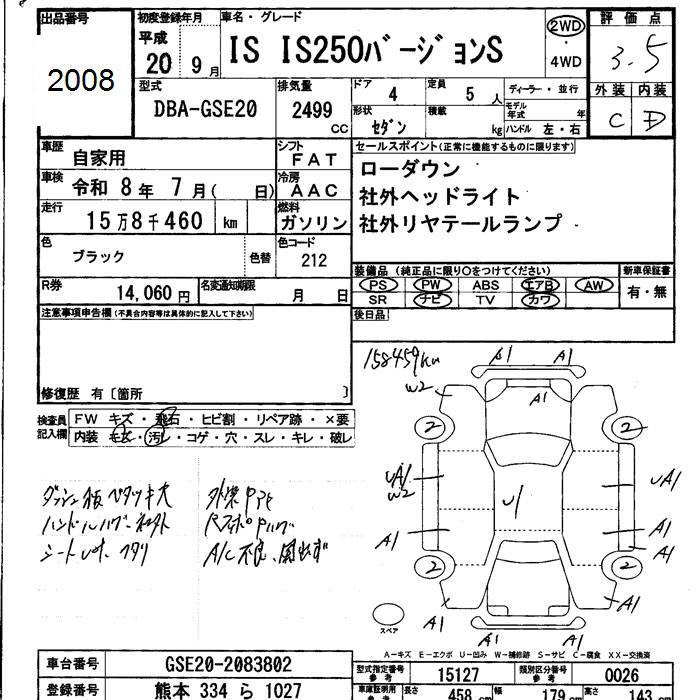 出品番号
2008
初度登録年月
平成
20 9 月
車名・グレード
IS IS250バージョンS
2WD
・
4WD
評価点
3.5
外装 内装
C D
型式
DBA-GSE20
排気量
2499
CC
ドア
4
定員
5 人
ディーラー・並行
形状
セダン
積載
kg
モデル年式 年
ハンドル 左・右
車歴
自家用
シフト
FAT
車検
令和 8 年 7 月( 日)
冷房
AAC
走行
15万8千460 km
燃料
ガソリン
色
ブラック
色替
色コード
212
R券
14,060 円
名変通知期限
月 日
セールスポイント(正常に機能するものに限ります)
ローダウン
社外ヘッドライト
社外リヤテールランプ
装備品(純正品に限り○をつけてください)
PS PW ABS エアB AW
SR ナビ TV カワ
新車保証書
有・無
後日品
注意事項申告欄(不具合内容等は具体的に記入して下さい)
修復歴 有〔箇所 〕
検査員
記入欄
FW キズ・飛石・ヒビ割・リペア跡・×要
内装 モケ・汚レ・コゲ・穴・スレ・キレ・破レ
ダッシュ板ベタツキ大
シート
外装
A/C不良
158459km
A1 A1
W2
A1
2 2
UA1
W2
U1
UA1
A1
A1
A1
2 2
A1
A1
A1 A1
スペア
A-キズ E-エクボ U-凹み W-補修跡 S-サビ C-腐食 XX-交換済
車台番号
GSE20-2083802
型式指定番号
参考
15127
類別区分番号
参考
0026
登録番号
熊本 334 ら 1027
車庫証明用
参考
長さ
458 cm
幅
179 cm
高さ
143 cm